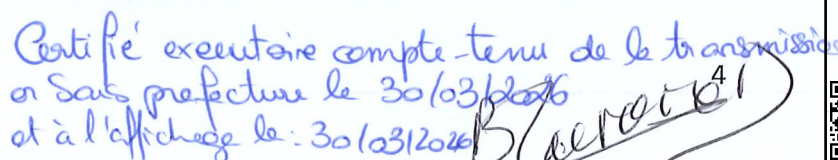 Certifié executoire compte-tenu de la transmission
en Sous prefecture le 30/03/2026
et à l'affichage le: 30/03/2026
4